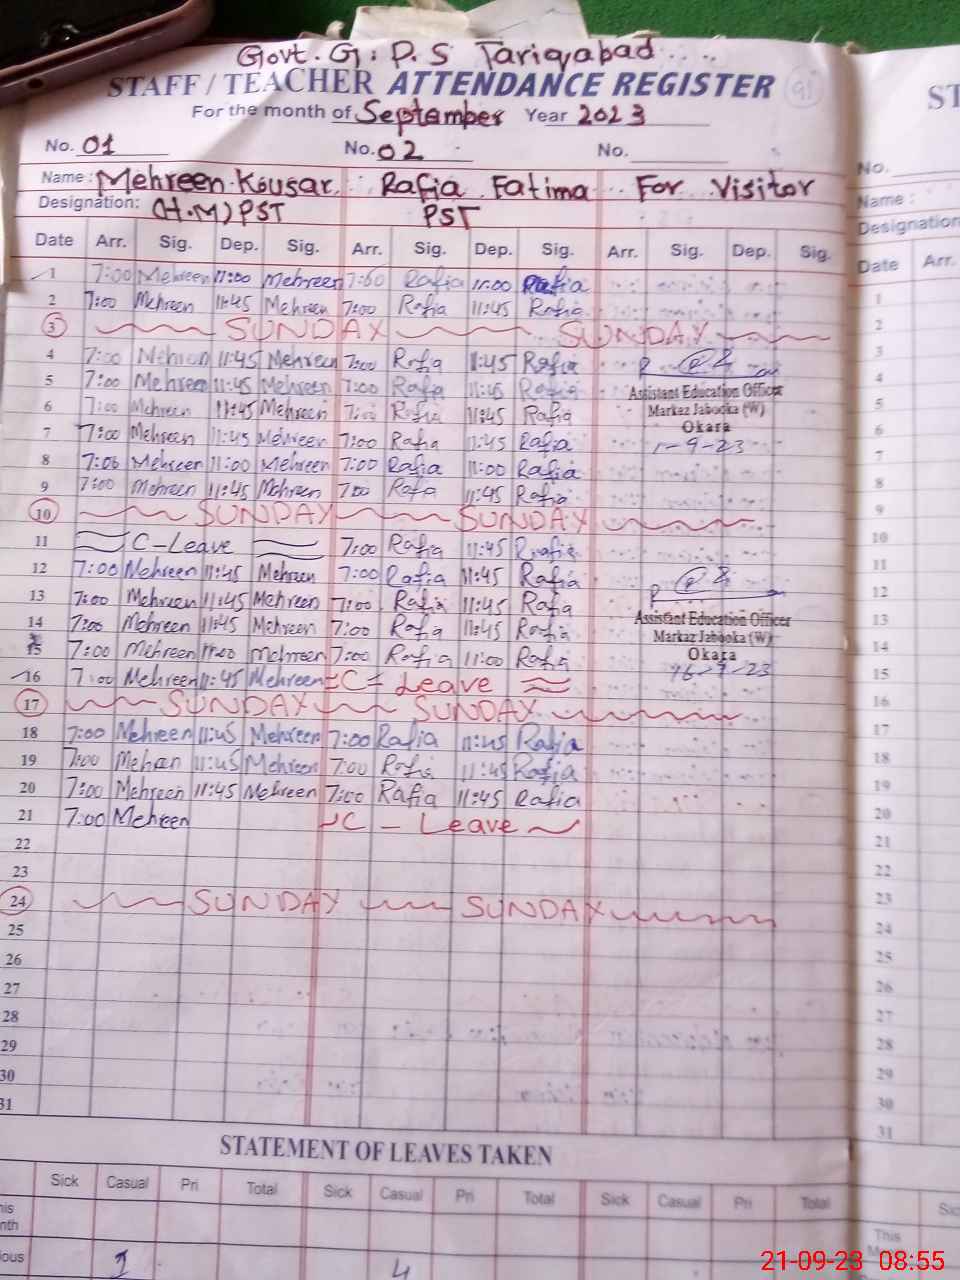 Govt. G. P. S Tariqabad
STAFF / TEACHER ATTENDANCE REGISTER 91
For the month of September Year 2023
No. 01 No. 02 No.
Name: Mehreen Kousar Rafia Fatima For Visitor
Designation: (H.M) PST PST
Date Arr. Sig. Dep. Sig. Arr. Sig. Dep. Sig. Arr. Sig. Dep. Sig.
1 7:00 Mehreen 11:00 Mehreen 7:00 Rafia 11:00 Rafia
2 7:00 Mehreen 11:45 Mehreen 7:00 Rafia 11:45 Rafia
3 SUNDAY SUNDAY
4 7:00 Mehreen 11:45 Mehreen 7:00 Rafia 11:45 Rafia
5 7:00 Mehreen 11:45 Mehreen 7:00 Rafia 11:45 Rafia Assistant Education Officer
6 7:00 Mehreen 11:45 Mehreen 7:00 Rafia 11:45 Rafia Markaz Jabooka (W)
Okara
7 7:00 Mehreen 11:45 Mehreen 7:00 Rafia 11:45 Rafia 1-9-23
8 7:00 Mehreen 11:00 Mehreen 7:00 Rafia 11:00 Rafia
9 7:00 Mehreen 11:45 Mehreen 7:00 Rafia 11:45 Rafia
10 SUNDAY SUNDAY
11 C-Leave 7:00 Rafia 11:45 Rafia
12 7:00 Mehreen 11:45 Mehreen 7:00 Rafia 11:45 Rafia
13 7:00 Mehreen 11:45 Mehreen 7:00 Rafia 11:45 Rafia Assistant Education Officer
14 7:00 Mehreen 11:45 Mehreen 7:00 Rafia 11:45 Rafia Markaz Jabooka (W)
15 7:00 Mehreen 11:00 Mehreen 7:00 Rafia 11:00 Rafia Okara
16 7:00 Mehreen 11:45 Mehreen C Leave 16-9-23
17 SUNDAY SUNDAY
18 7:00 Mehreen 11:45 Mehreen 7:00 Rafia 11:45 Rafia
19 7:00 Mehreen 11:45 Mehreen 7:00 Rafia 11:45 Rafia
20 7:00 Mehreen 11:45 Mehreen 7:00 Rafia 11:45 Rafia
21 7:00 Mehreen C - Leave
22
23
24 SUNDAY SUNDAY
25
26
27
28
29
30
31
STATEMENT OF LEAVES TAKEN
Sick Casual Pri Total Sick Casual Pri Total Sick Casual Pri Total
1 4
ST
No.
Name :
Designation
Date Arr.
1
2
3
4
5
6
7
8
9
10
11
12
13
14
15
16
17
18
19
20
21
22
23
24
25
26
27
28
29
30
31
This
21-09-23 08:55